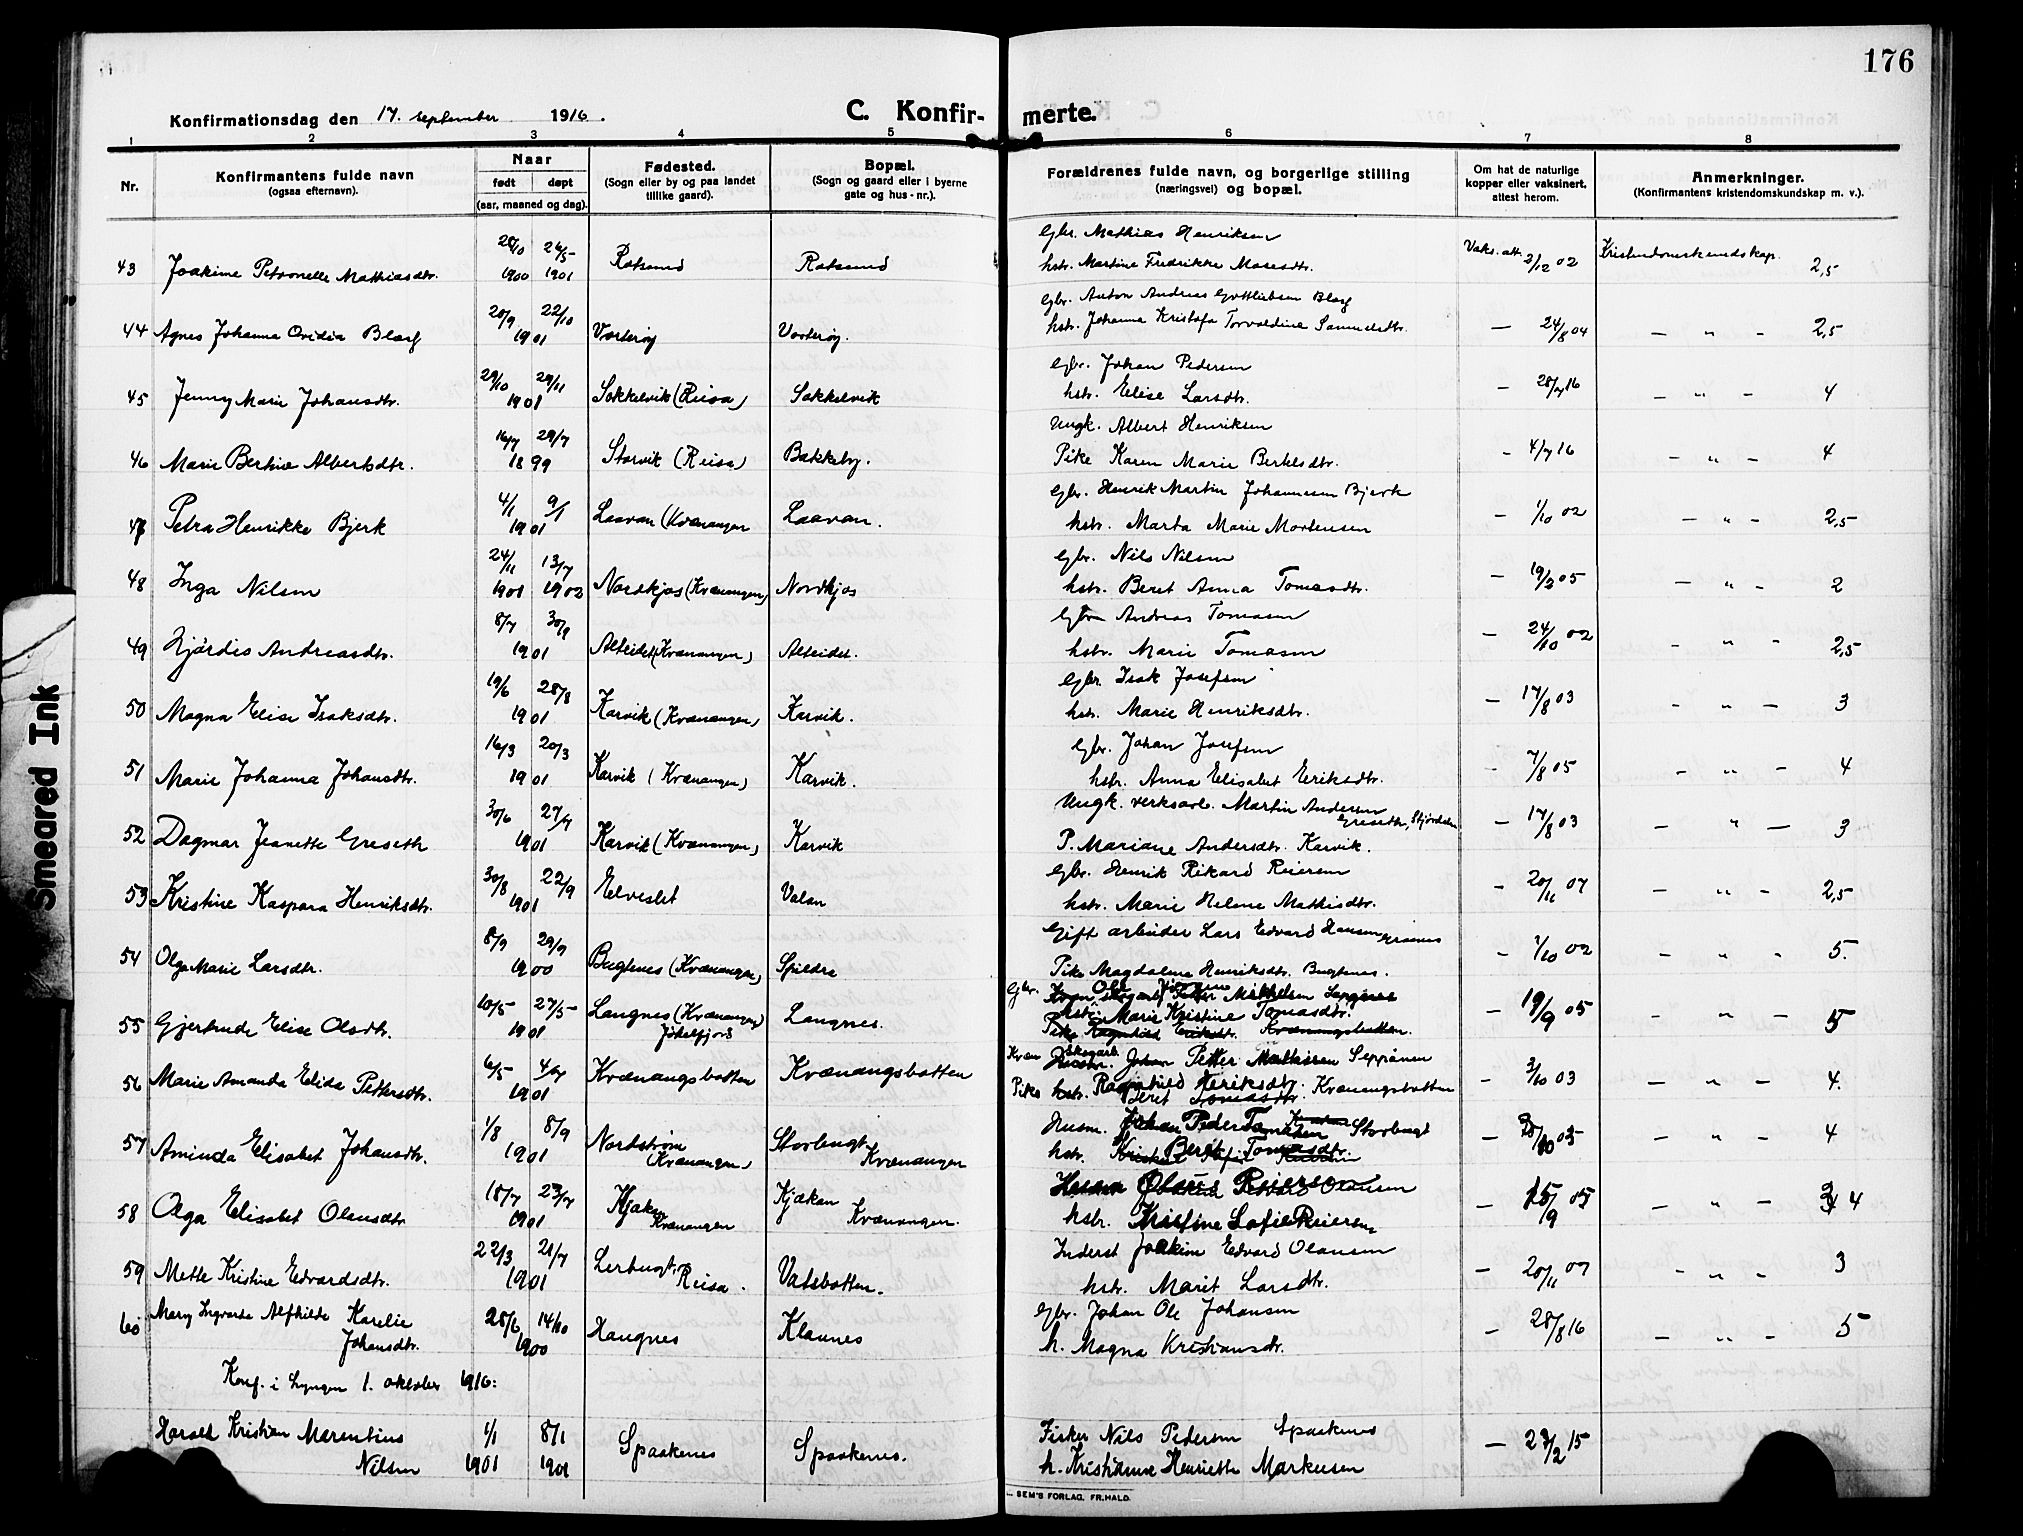 176
Konfirmationsdag den 17. september 1916.
C. Konfir- merte.
1 2 3 4 5 6 7 8
Nr.
Konfirmantens fulde navn
(ogsaa efternavn).
Naar
født døpt
(aar, maaned og dag).
Fødested.
(Sogn eller by og paa landet
tillike gaard).
Bopæl.
(Sogn og gaard eller i byerne
gate og hus - nr.).
Forældrenes fulde navn, og borgerlige stilling
(næringsvei) og bopæl.
Om hat de naturlige
kopper eller vaksinert,
attest herom.
Anmerkninger.
(Konfirmantens kristendomskundskap m. v.).
28/10 26/5 Gbr. Mathias Henriksen
43 Joakime Petronelle Mathiasdtr. 1900 1901 Rotsund Rotsund hstr. Martine Fredrikke Mosesdtr. Vaks. att. 2/12 02 Kristendomskundskap. 2,5
20/9 22/10 Gbr. Anton Andreas Gottliebsen
44 Agnes Johanna Ovidia 1901 Vorterøy Vorterøy. hstr. Johanna Kristofa Torvaldine Samuelsdtr. — 24/8 04 — " — 2,5
29/10 29/11 Gbr. Johan Pedersen
45 Jenny Marie Johansdtr. 1901 Sokkelvik (Reisa) Sokkelvik hstr. Elise Larsdtr. — 28/7 16 — " — 4
16/7 29/7 Ungk. Albert Henriksen
46 Marie Bertine Albertsdtr. 1899 Storvik (Reisa) Bakkeby. Pike Karen Marie Bertelsdtr. - 4/7 16 — " — 4
4/1 9/1 Gbr. Henrik Martin Johannesen Bjerk
47 Petra Henrikke Bjerk 1901 Laavan (Kvænangen Laavan. hstr. Marta Marie Mortensen — 1/10 02 — " — 2,5
24/11 13/7 Gbr. Nils Nilsen
48 Inga Nilsen 1901 1902 Nordkjos (Kvænangen) Nordkjos hstr. Beret Anna Tomasdtr. — 19/2 05 — " - 2
8/7 30/9 Gbr Andreas Tomasen
49 Hjørdis Andreasdtr. 1901 Alteidet (Kvænangen) Alteidet. hstr. Marie Tomasen — 24/10 02 - " - 2,5
19/6 28/8 Gbr Isak Josefsen
50 Magna Elise Isaksdtr. 1901 Karvik (Kvænangen) Karvik. hstr. Marie Henriksdtr. — 17/8 03 - " — 3
16/3 20/3 Gbr. Johan Josefsen
51 Marie Johanna Johansdtr. 1901 Karvik (Kvænangen) Karvik. hstr. Anna Elisabet Eriksdtr. - 7/8 05 — " — 4
30/6 27/7 Ungk. verksarb. Martin Andersen Greseth, Stjørdalen
52 Dagmar Jeanette Greseth 1901 Karvik (Kvænangen) Karvik P. Mariane Andersdtr. Karvik. — 17/8 03 — " — 3
30/8 22/9 Gbr. Henrik Rikard Reiersen
53 Kristine Kaspara Henriksdtr. 1901 Elveslet Valan hstr. Marie Helene Mathisdtr. - 20/11 07 — " - 2,5
8/9 29/9 Gift arbeider Lars Edvard Hansen
54 Olga Marie Larsdtr. 1900 Bugtnes (Kvænangen) Spildra Pike Magdalena Henriksdtr. Bugtnes. - 1/10 02 - " - 5.
10/5 27/5 Gbr. Ole
55 Gjertrude Elise Olsdtr. 1901 Langnes (Kvænangen) Jøkelfjord Langnes. hstr. Marie Kristine Tomasdtr. — 19/9 05 - " - 5
6/5 4/7 Kvæn Skogarb. Petter Mathisen Seppänen
56 Marie Amanda Elida Pettersdtr. 1901 Kvænangsbotten Kvænangsbotten Pike Ragnhild Eriksdtr. Kvænangsbotten - 3/10 03 — " - 4.
1/8 8/9 Husm. Johan Peder Storbugt
57 Aminda Elisabet Johansdtr. 1901 Nordstrøm (Kvænangen) Storbugt Kvænangen hstr. Beret Tomasdtr. - " - 4
18/7 23/7 Olaus Reiersen
58 Olga Elisabet Olausdtr 1901 Kjækan Kvænangen Kjækan Kvænangen. hstr. Kristine Sofie Reiersen — 15/9 05 — " - 4
22/3 21/7 Inderst Joakim Edvard Olausen
59 Mette Kristine Edvardsdtr. 1901 Lerbugt, Reisa. Vatsbotten. hstr. Marit Larsdtr. — 20/11 07 - " - 3
60 Mary Ingvarda Alfhilde Karelie 28/6 14/10 Gbr. Johan Ole Johansen
Johansdtr. 1900 Haugnes Klaunes h. Magna Kristiansdtr. — 28/8 16 — " - 5
Konf. i Lyngen 1. oktober 1916:
Harald Kristian Marentius 1/1 8/1 Spaakenes Spaakenes. Fisker Nils Pedersen Spaakenes
Nilsen 1901 1901 h. Kristianne Henriette Markusen — 27/2 15
SEM'S FORLAG, FR. HALD.
Smeared Ink